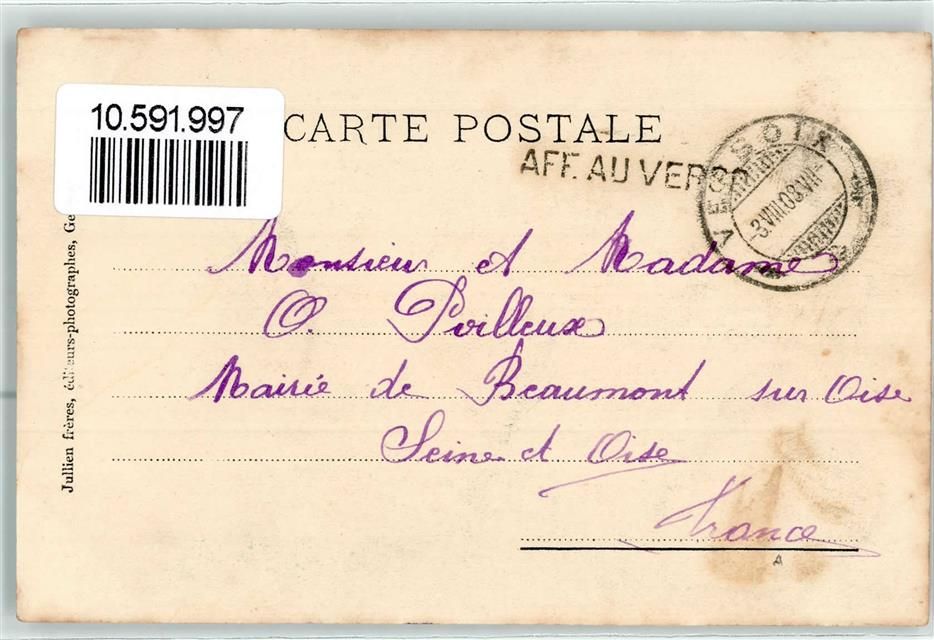 10.591.997
CARTE POSTALE
AFF. AU VERSO
VERSOIX
3.VIII.03.VII-
Monsieur et Madame
O. Poilleux
Mairie de Beaumont sur Oise
Seine et Oise
France
A
Jullien frères, éditeurs-photographes, Ge